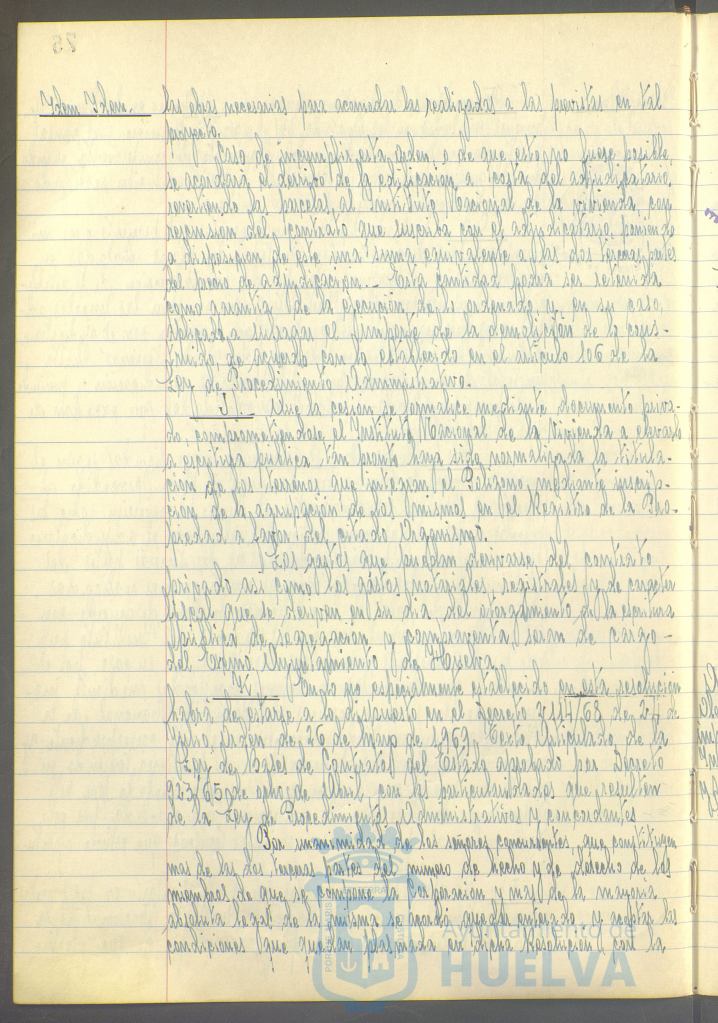 25
Idem Idem.
las obras necesarias para acomodar las realizadas a las previstas en tal
proyecto.
Caso de incumplir esta orden, o de que esto no fuese posible,
se acordará el derribo de la edificacion a costa del adjudicatario,
revertiendo las parcelas al Instituto Nacional de la Vivienda, con
rescision del contrato que suscriba con el adjudicatario, poniendo
a disposicion de éste una suma equivalente a las dos terceras partes
del precio de adjudicación.- Esta cantidad podrá ser retenida
como garantia de la ejecución de lo ordenado y en su caso,
aplicada a sufragar el importe de la demolición de lo cons-
truido, de acuerdo con lo establecido en el artículo 106 de la
Ley de Procedimiento Administrativo.
Que la cesión se formalice mediante documento priva-
do, comprometiendose el Instituto Nacional de la Vivienda a elevarlo
a escritura publica tan pronto haya sido normalizada la titula-
cion de los terrenos que integran el Poligono, mediante inscrip-
ción de la agrupacion de los mismos en el Registro de la Pro-
piedad a favor del citado Organismo.
Los gastos que puedan derivarse del contrato
privado asi como los gastos notariales, registrales y de caracter
fiscal que se deriven en su dia, del otorgamiento de la escritura
publica de segregacion y compraventa, seran de cargo-
del Excmo. Ayuntamiento de Huelva.
En lo no especialmente establecido en esta resolución
habrá de estarse a lo dispuesto en el Decreto de 24 de
Julio, Orden de 26 de Mayo de 1969, Texto Articulado de la
Ley de Bases de Contratos del Estado aprobado por Decreto
923/65 de ocho de Abril, con las particularidades que resulten
de la Ley de Procedimientos Administrativos y concordantes
Por unanimidad de los señores concurrentes, que constituyen
mas de las dos terceras partes del número de hecho y de derecho de los
miembros de que se compone la Corporación y mas de la mayoria
absoluta legal de la misma se acordó quedar enterado y aceptar las
condiciones que quedan plasmada en dicha Resolución, con la
Ayuntamiento de
HUELVA